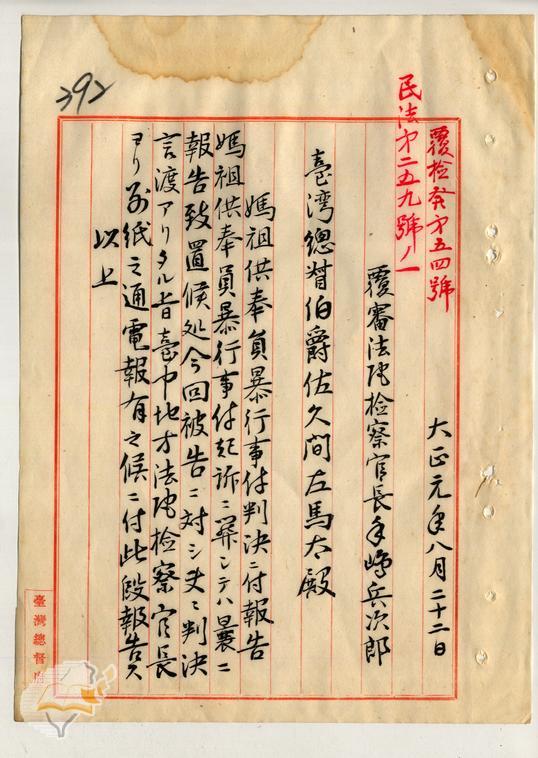 392
覆檢発才五四號
民法才二五九號ノ一
大正元年八月二十二日
覆審法院檢察官長手島兵次郎
臺湾總督伯爵佐久間左馬太殿
媽祖供奉員暴行事件判決ニ付報告
媽祖供奉員暴行事件起訴ニ関シテハ曩ニ
報告致置候処今回被告ニ対シ夫々判決
言渡アリタル旨臺中地方法院檢察官長
ヨリ別紙之通電報有之候ニ付此段報告
以上
臺灣總督府